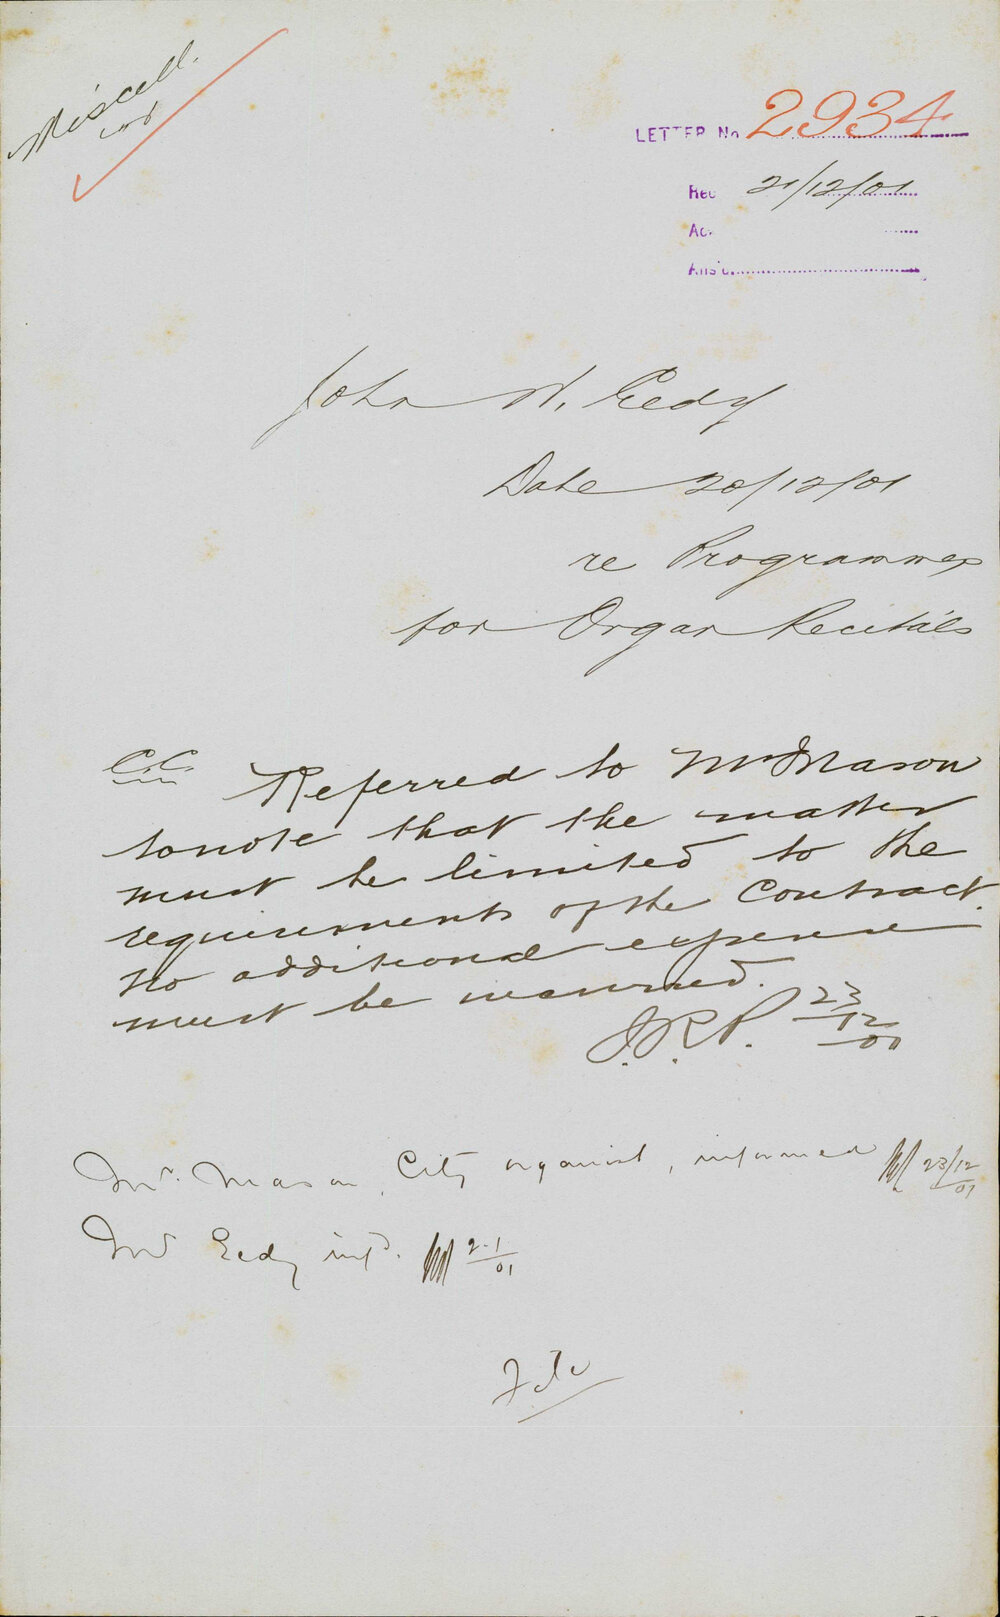 Miscell.
LETTER No 2934
Rec 21/12/01
Ac.
Ans'd.
John W. Eedy
Date 20/12/01
re Programmes
for Organ Recitals
C.C. Referred to Mr Mason
to note that the matter
must be limited to the
requirements of the Contract.
No additional expense
must be incurred.
J.R.P. 23/12/01
Mr. Mason, City organist, informed 23/12/01
Mr Eedy infd. 2.1/01
File